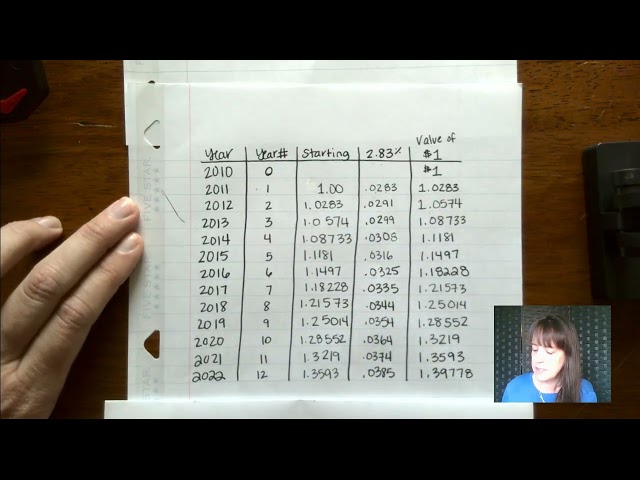 Value of
Year Year# Starting 2.83% $1
2010 0 $1
2011 1 1.00 .0283 1.0283
2012 2 1.0283 .0291 1.0574
2013 3 1.0574 .0299 1.08733
2014 4 1.08733 .0308 1.1181
2015 5 1.1181 .0316 1.1497
2016 6 1.1497 .0325 1.18228
2017 7 1.18228 .0335 1.21573
2018 8 1.21573 .0344 1.25014
2019 9 1.25014 .0354 1.28552
2020 10 1.28552 .0364 1.3219
2021 11 1.3219 .0374 1.3593
2022 12 1.3593 .0385 1.39778
FIVE STAR
FIVE STAR